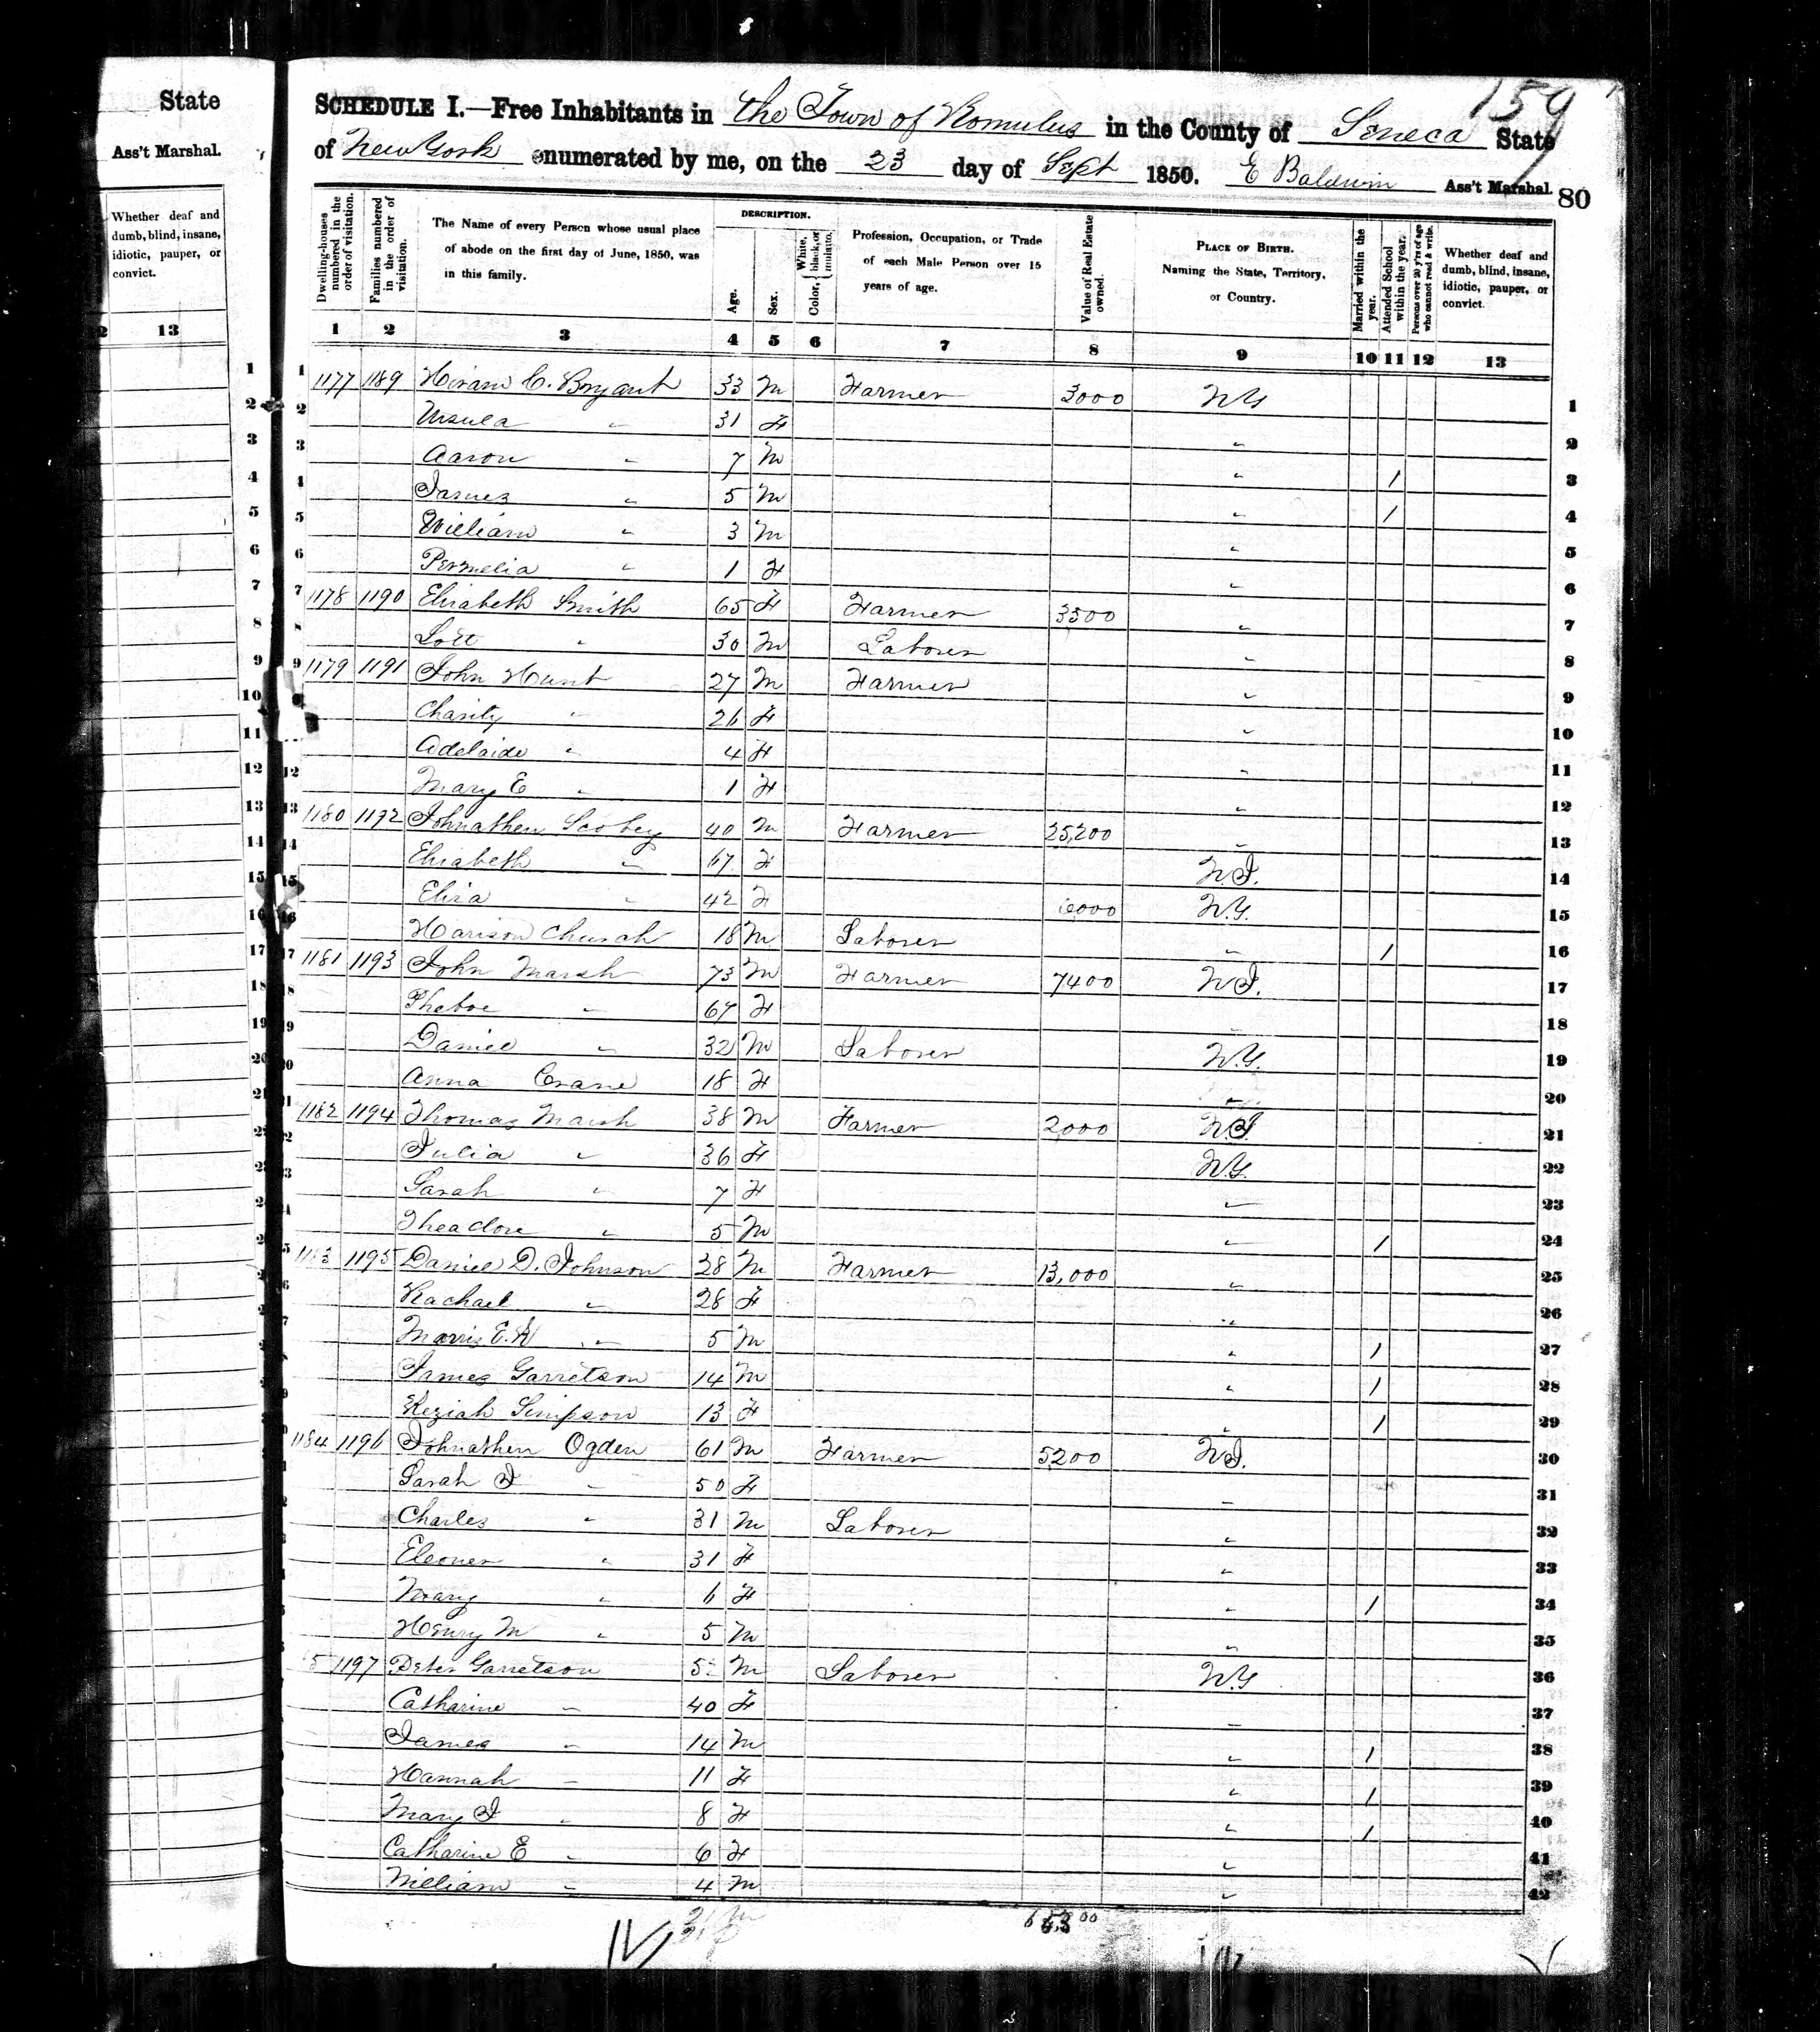 State
Ass't Marshal.
Whether deaf and
dumb, blind, insane,
idiotic, pauper, or
convict.
13
159
SCHEDULE I.—Free Inhabitants in the Town of Romulus in the County of Seneca State
of New York enumerated by me, on the 23 day of Sept 1850. E Baldwin Ass't Marshal.
80
Dwelling-houses numbered in the order of visitation.
Families numbered in the order of visitation.
The Name of every Person whose usual place of abode on the first day of June, 1850, was in this family.
DESCRIPTION.
Age.
Sex.
Color, { White, black, or mulatto.
Profession, Occupation, or Trade of each Male Person over 15 years of age.
Value of Real Estate owned.
PLACE OF BIRTH. Naming the State, Territory, or Country.
Married within the year.
Attended School within the year.
Persons over 20 y'rs of age who cannot read & write.
Whether deaf and dumb, blind, insane, idiotic, pauper, or convict.
1 2 3 4 5 6 7 8 9 10 11 12 13
1 1177 1189 Hiram C. Bryant 33 M Farmer 3000 NY 1
2 Ursula " 31 F " 2
3 Aaron " 7 M " 1 3
4 James " 5 M " 1 4
5 William " 3 M " 5
6 Permelia " 1 F " 6
7 1178 1190 Elizabeth Smith 65 F Farmer 3500 " 7
8 Lott " 30 M Laborer " 8
9 1179 1191 John Hunt 27 M Farmer " 9
Charity " 26 F " 10
Adelaide " 4 F " 11
12 Mary E " 1 F " 12
13 1180 1192 Johnathen Scobey 40 M Farmer 25,200 " 13
14 Elizabeth " 67 F N.J. 14
15 Eliza " 42 F N.Y. 15
16 Harison Church 18 M Laborer " 1 16
17 1181 1193 John Marsh 73 M Farmer 7400 N.J. 17
18 Pheboe " 67 F " 18
19 Daniel " 32 M Laborer N.Y. 19
Anna Crane 18 F " 20
1182 1194 Thomas Marsh 38 M Farmer 2000 N.J. 21
Julia " 36 F N.Y. 22
Sarah " 7 F " 23
Theadore " 5 M " 1 24
1183 1195 Daniel D. Johnson 28 M Farmer 13,000 " 25
Rachael " 28 F " 26
Morris E. " 5 M " 1 27
James Garretson 14 M " 1 28
Keziah Simpson 13 F " 1 29
1184 1196 Johnathen Ogden 61 M Farmer 5200 N.J. 30
Sarah J " 50 F " 31
Charles " 31 M Laborer " 32
Eleoner " 31 F " 33
Mary " 6 F " 1 34
Henry M " 5 M " 35
1197 Peter Garretson M Laborer N.Y 36
Catharine " 40 F " 37
James " 14 M " 1 38
Hannah " 11 F " 1 39
Mary J " 8 F " 1 40
Catharine E " 6 F " 41
William " 4 M " 42